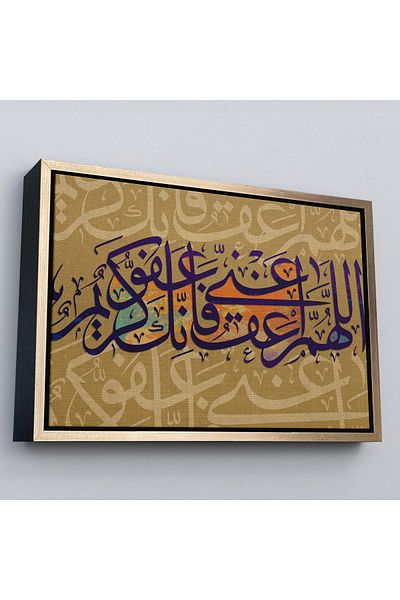 اللهمّ اعف عني فإنّك عفو كريم